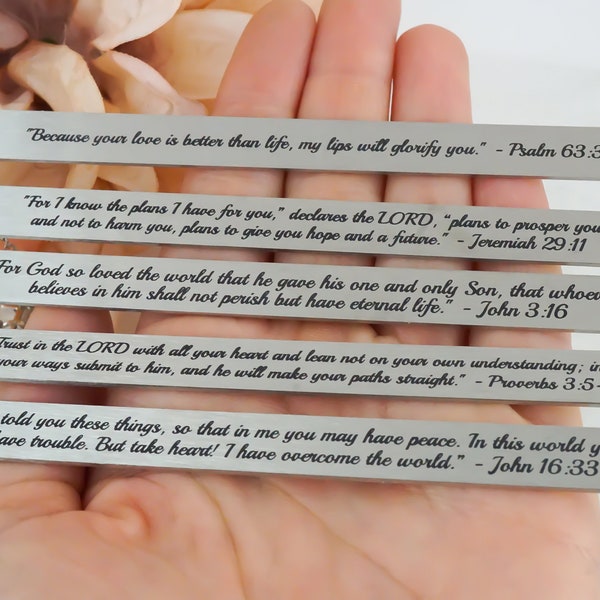 "Because your love is better than life, my lips will glorify you." - Psalm 63:3
"For I know the plans I have for you," declares the LORD, "plans to prosper you
and not to harm you, plans to give you hope and a future." - Jeremiah 29:11
For God so loved the world that he gave his one and only Son, that whoev
believes in him shall not perish but have eternal life." - John 3:16
Trust in the LORD with all your heart and lean not on your own understanding; in
your ways submit to him, and he will make your paths straight." - Proverbs 3:5-
told you these things, so that in me you may have peace. In this world y
have trouble. But take heart! I have overcome the world." - John 16:33